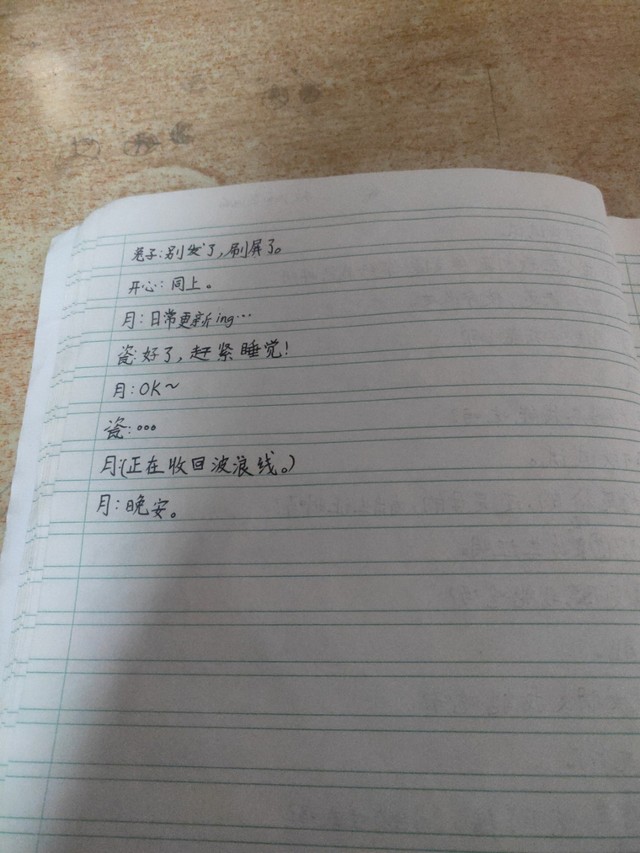 兔子:别发了,刷屏了。
开心:同上。
月:日常更新ing…
瓷:好了,赶紧睡觉!
月:OK~
瓷:。。。
月:(正在收回波浪线。)
月:晚安。